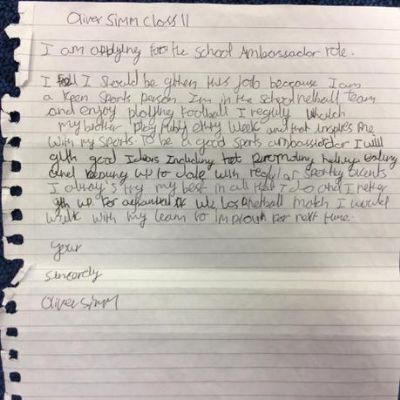 Oliver Simm Class 11
I am applying for the school Ambassador role.
I fell I should be given this job because I am
a keen sports person. I'm in the school netball team
and enjoy playing football I reguly whatch
my brother play ruby every week and that inspires me
with my sports. To be a good sports ambassador I will
give good Ideas Including promoting helthy eating
and keeping up to date with regular sporting events
I always try my best in all that I do and I never
give up For we Los netball match I would
work with my team to improve for next time.
your
sincerely
Oliver Simm